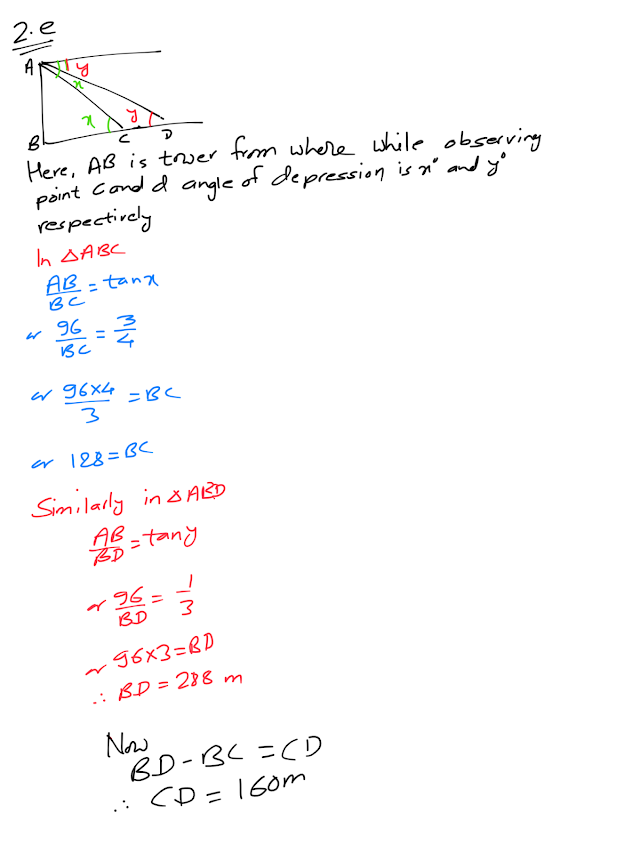 2.e
A
y
x
x
y
B
C
D
Here, AB is tower from where while observing
point C and d angle of depression is x° and y°
respectively
In △ABC
AB/BC = tanx
or 96/BC = 3/4
or 96×4/3 = BC
or 128 = BC
Similarly in △ABD
AB/BD = tany
or 96/BD = 1/3
or 96×3 = BD
∴ BD = 288 m
Now
BD - BC = CD
∴ CD = 160m